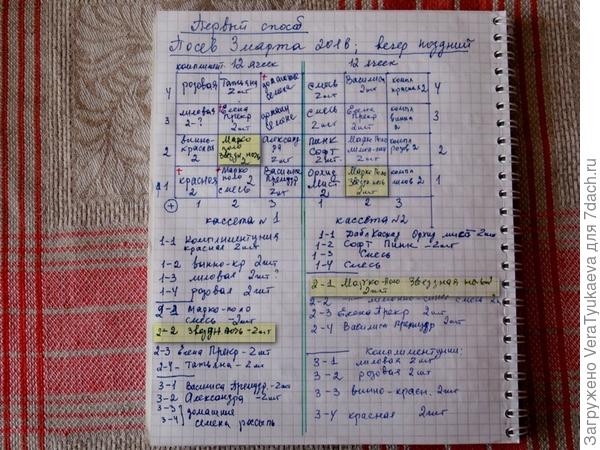 Первый способ
Посев 3 марта 2018; вечер поздний
12 ячеек
12 ячеек
4
розовая
2
Татьяна
2 шт
домашние
семена
3
лиловая
2-?
Елена
Прекр
2 шт
домашн
семена
2
винно-
красная
2
Марко
поло
звездн ночь
2
Александ
2 шт
1
красная
2
Марко
поло
смесь
2
Василиса
2 шт
1 2 3
смесь
Василиса
2 шт
компл
красная 2
4
смесь
Елена
Прекр
2 шт
компл
винно
2
3
Пинк
Софт
Марко Поло
2 шт
компл
розов 2
2
Орхид
Мист 2
Марко Поло
Звездн ночь
2 шт
компл
лилов 2
1
1 2 3
кассета № 1
1-1 Комплиментуния
красная 2 шт
1-2 винно-кр 2 шт
1-3 лиловая 2 шт?
1-4 розовая 2 шт
2-1 Марко-поло
смесь -2 шт
2-2 Звездн ночь -2 шт
2-3 Елена Прекр -2 шт
2-4 Татьяна -2 шт
3-1 Василиса -2 шт
3-2 Александра -2 шт
3-3
3-4 домашние
семена
кассета №2
1-1 Дабл Каскад Орхид мист 2 шт
1-2 Софт Пинк -2 шт
1-3 Смесь
1-4 Смесь
2-1 Марко-поло Звездная ночь
2 шт
2-2 смесь 2 шт
2-3 Елена Прекр 2 шт
2-4 Василиса 2 шт
Комплиментунии:
3-1 лиловая 2 шт
3-2 розовая 2 шт
3-3 винно-красн. 2 шт
3-4 красная 2 шт
Загружено VeraTyukaeva для 7dach.ru